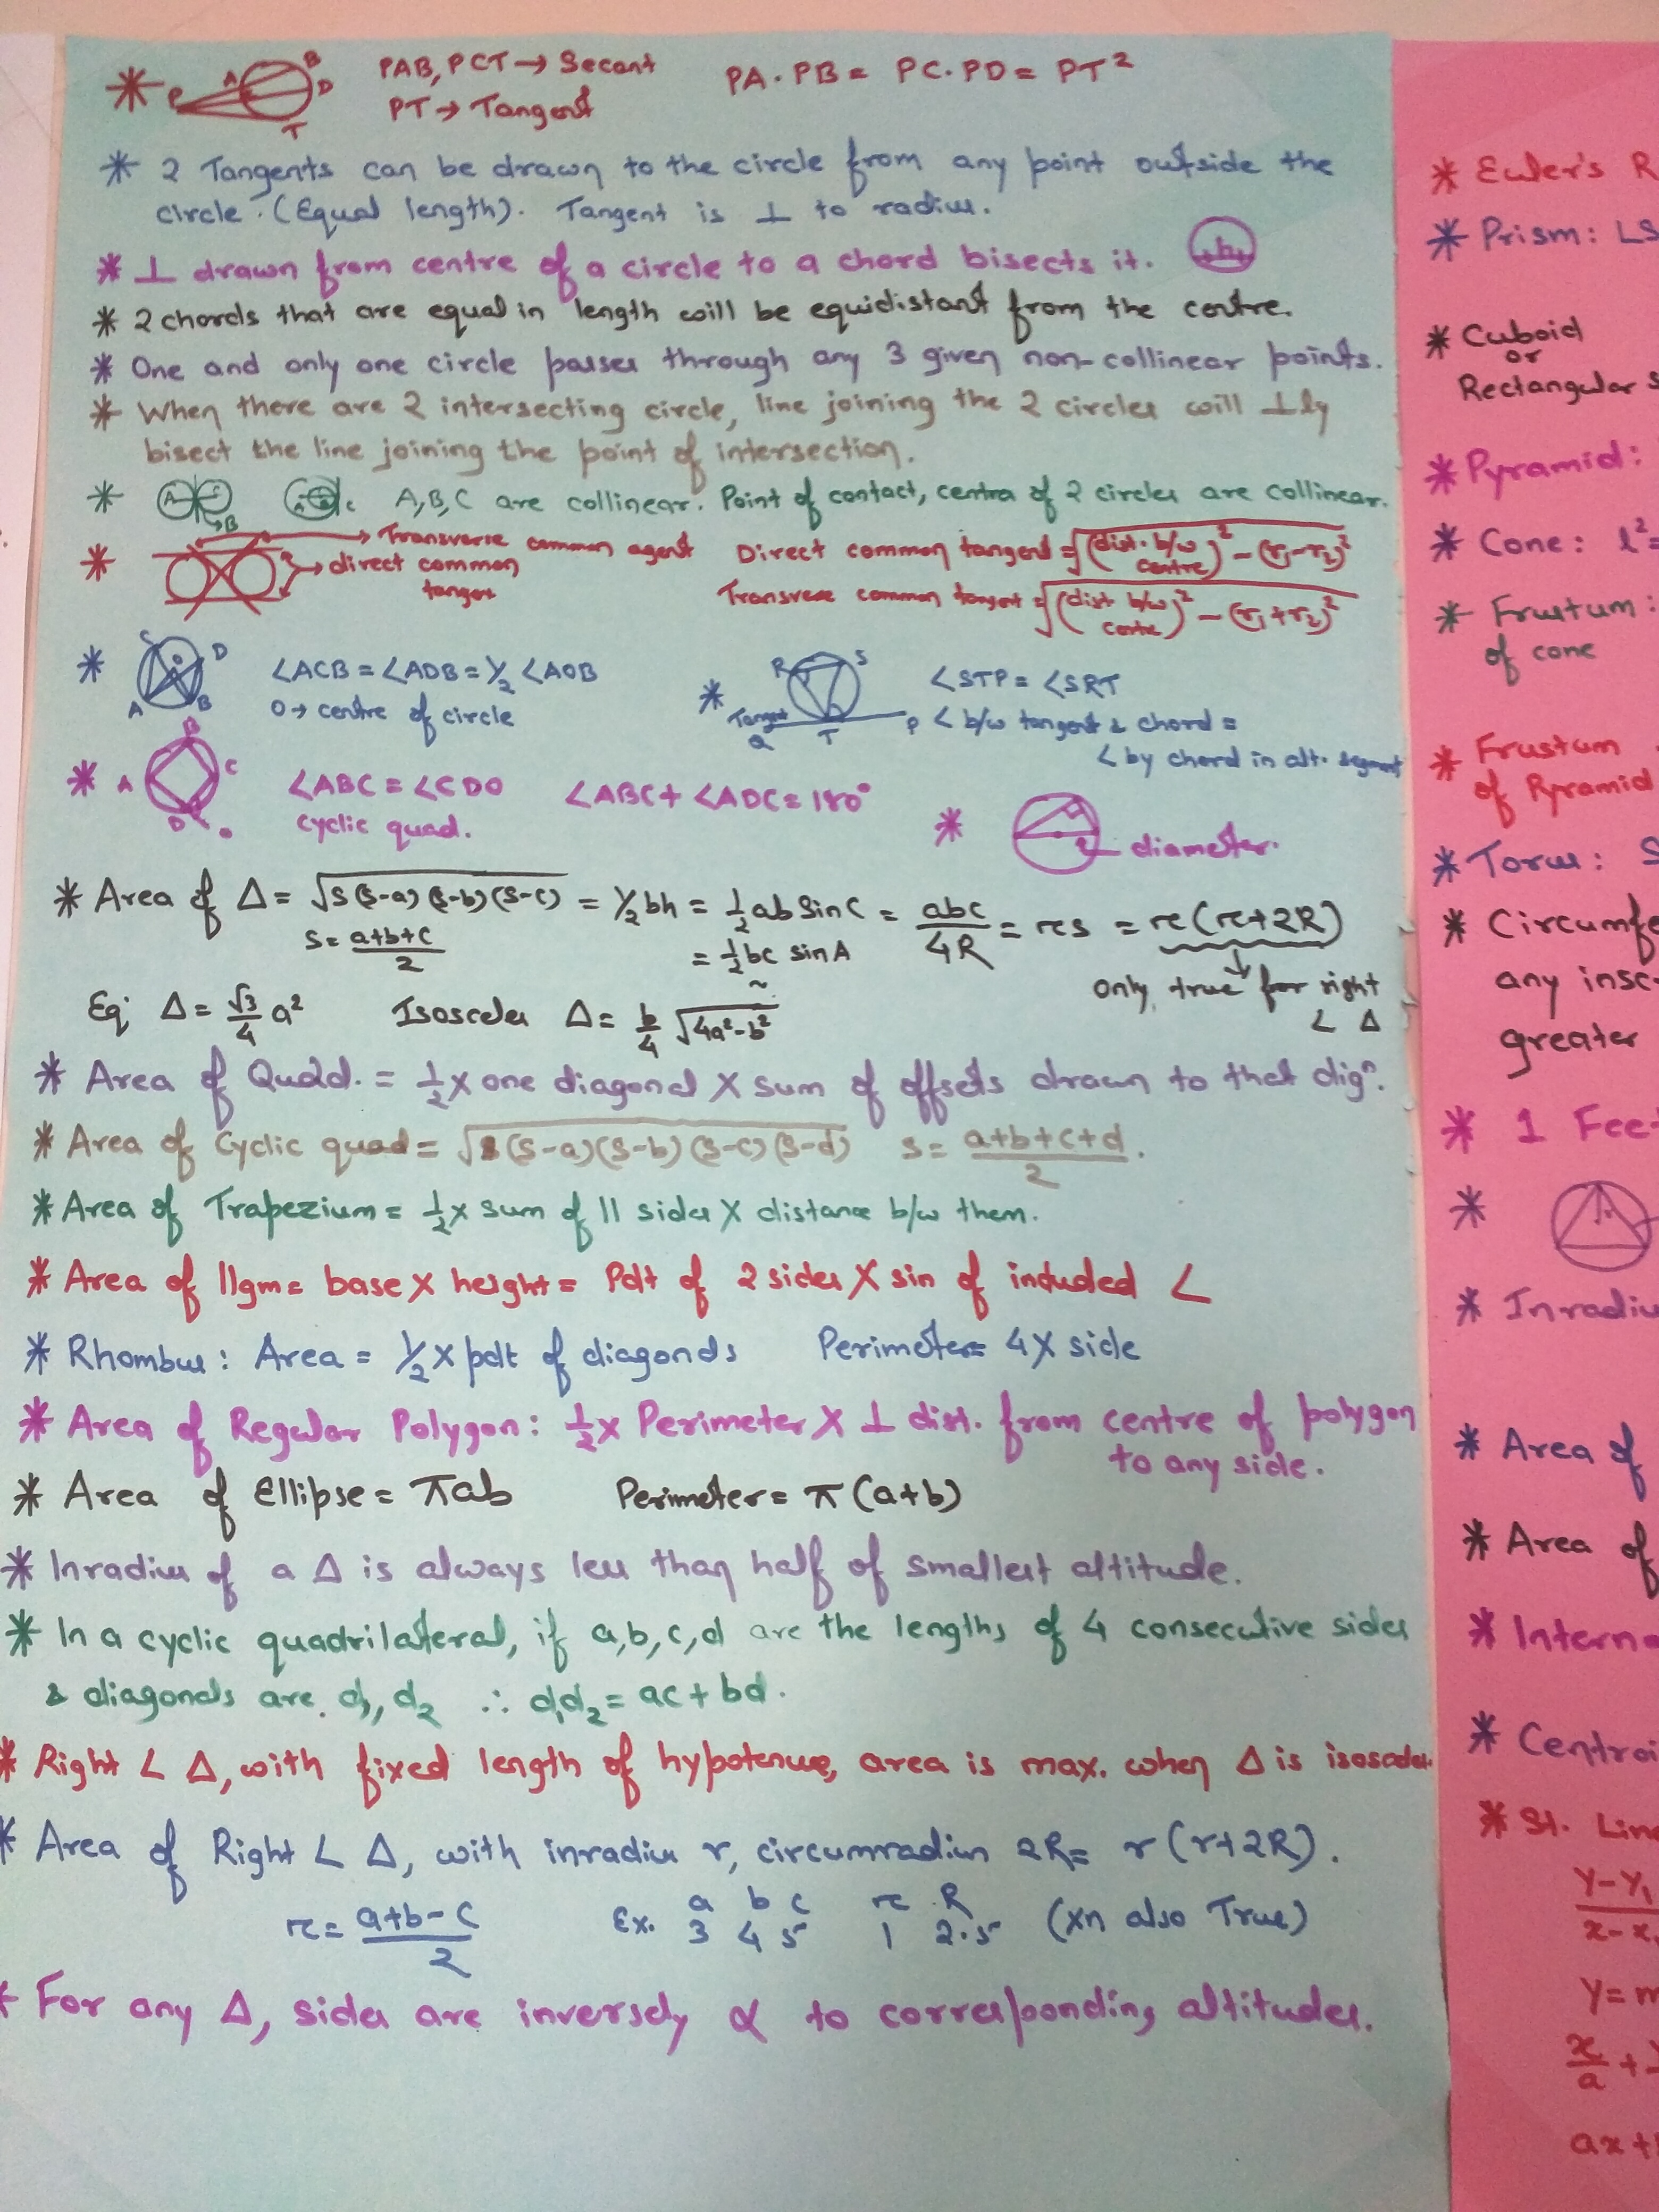 * P A B D T PAB, PCT → Secant PA·PB = PC·PD = PT²
PT → Tangent
* 2 Tangents can be drawn to the circle from any point outside the
circle. (Equal length). Tangent is ⊥ to radius.
* ⊥ drawn from centre of a circle to a chord bisects it.
* 2 chords that are equal in length will be equidistant from the centre.
* One and only one circle passes through any 3 given non-collinear points.
* When there are 2 intersecting circle, line joining the 2 circles will ⊥ly
bisect the line joining the point of intersection.
* A B C A,B,C are collinear. Point of contact, centra of 2 circles are collinear.
* Transverse common agent Direct common tangent = √((dist. b/w centre)² - (r₁-r₂)²)
direct common tangent Transverse common tangent = √((dist b/w centre)² - (r₁+r₂)²)
* C D O A B ∠ACB = ∠ADB = ½ ∠AOB
O → centre of circle
* R S Tangent Q T P ∠STP = ∠SRT
∠ b/w tangent & chord =
∠ by chord in alt. segment
* A B C D O ∠ABC = ∠CDO ∠ABC + ∠ADC = 180°
cyclic quad.
* diameter.
* Area of Δ = √s(s-a)(s-b)(s-c) = ½bh = ½ab Sin C = abc/4R = rs = r(r+2R)
s = a+b+c/2 = ½bc sin A
only true for right ∠ Δ
Eq. Δ = √3/4 a² Isosceles Δ = b/4 √4a²-b²
* Area of Quad. = ½ x one diagonal X sum of offsets drawn to that digⁿ.
* Area of Cyclic quad = √(s-a)(s-b)(s-c)(s-d) s = a+b+c+d/2.
* Area of Trapezium = ½ x sum of || sides X distance b/w them.
* Area of ||gm = base X height = Pdt of 2 sides X sin of included ∠
* Rhombus: Area = ½ x pdt of diagonals Perimeter = 4 X side
* Area of Regular Polygon: ½ x Perimeter X ⊥ dist. from centre of polygon
to any side.
* Area of Ellipse = πab Perimeter = π(a+b)
* Inradius of a Δ is always less than half of smallest altitude.
* In a cyclic quadrilateral, if a,b,c,d are the lengths of 4 consecutive sides
& diagonals are d₁, d₂ ∴ d₁d₂ = ac + bd.
* Right ∠ Δ, with fixed length of hypotenuse, area is max. when Δ is isosceles
* Area of Right ∠ Δ, with inradius r, circumradius 2R = r(r+2R).
r = a+b-c/2 Ex. a b c r R
3 4 5 1 2.5 (xn also True)
* For any Δ, sides are inversely α to corresponding altitudes.
* Euler's R
* Prism: LS
* Cuboid
or
Rectangular S
* Pyramid:
* Cone: l² =
* Frustum:
of cone
* Frustum
of Pyramid
* Torus: S
* Circumfe
any insc
greater
* 1 Fee
*
* Inradiu
* Area of
* Area of
* Interna
* Centroi
* St. Line
y-y₁
x-x
y = m
x/a +
ax +